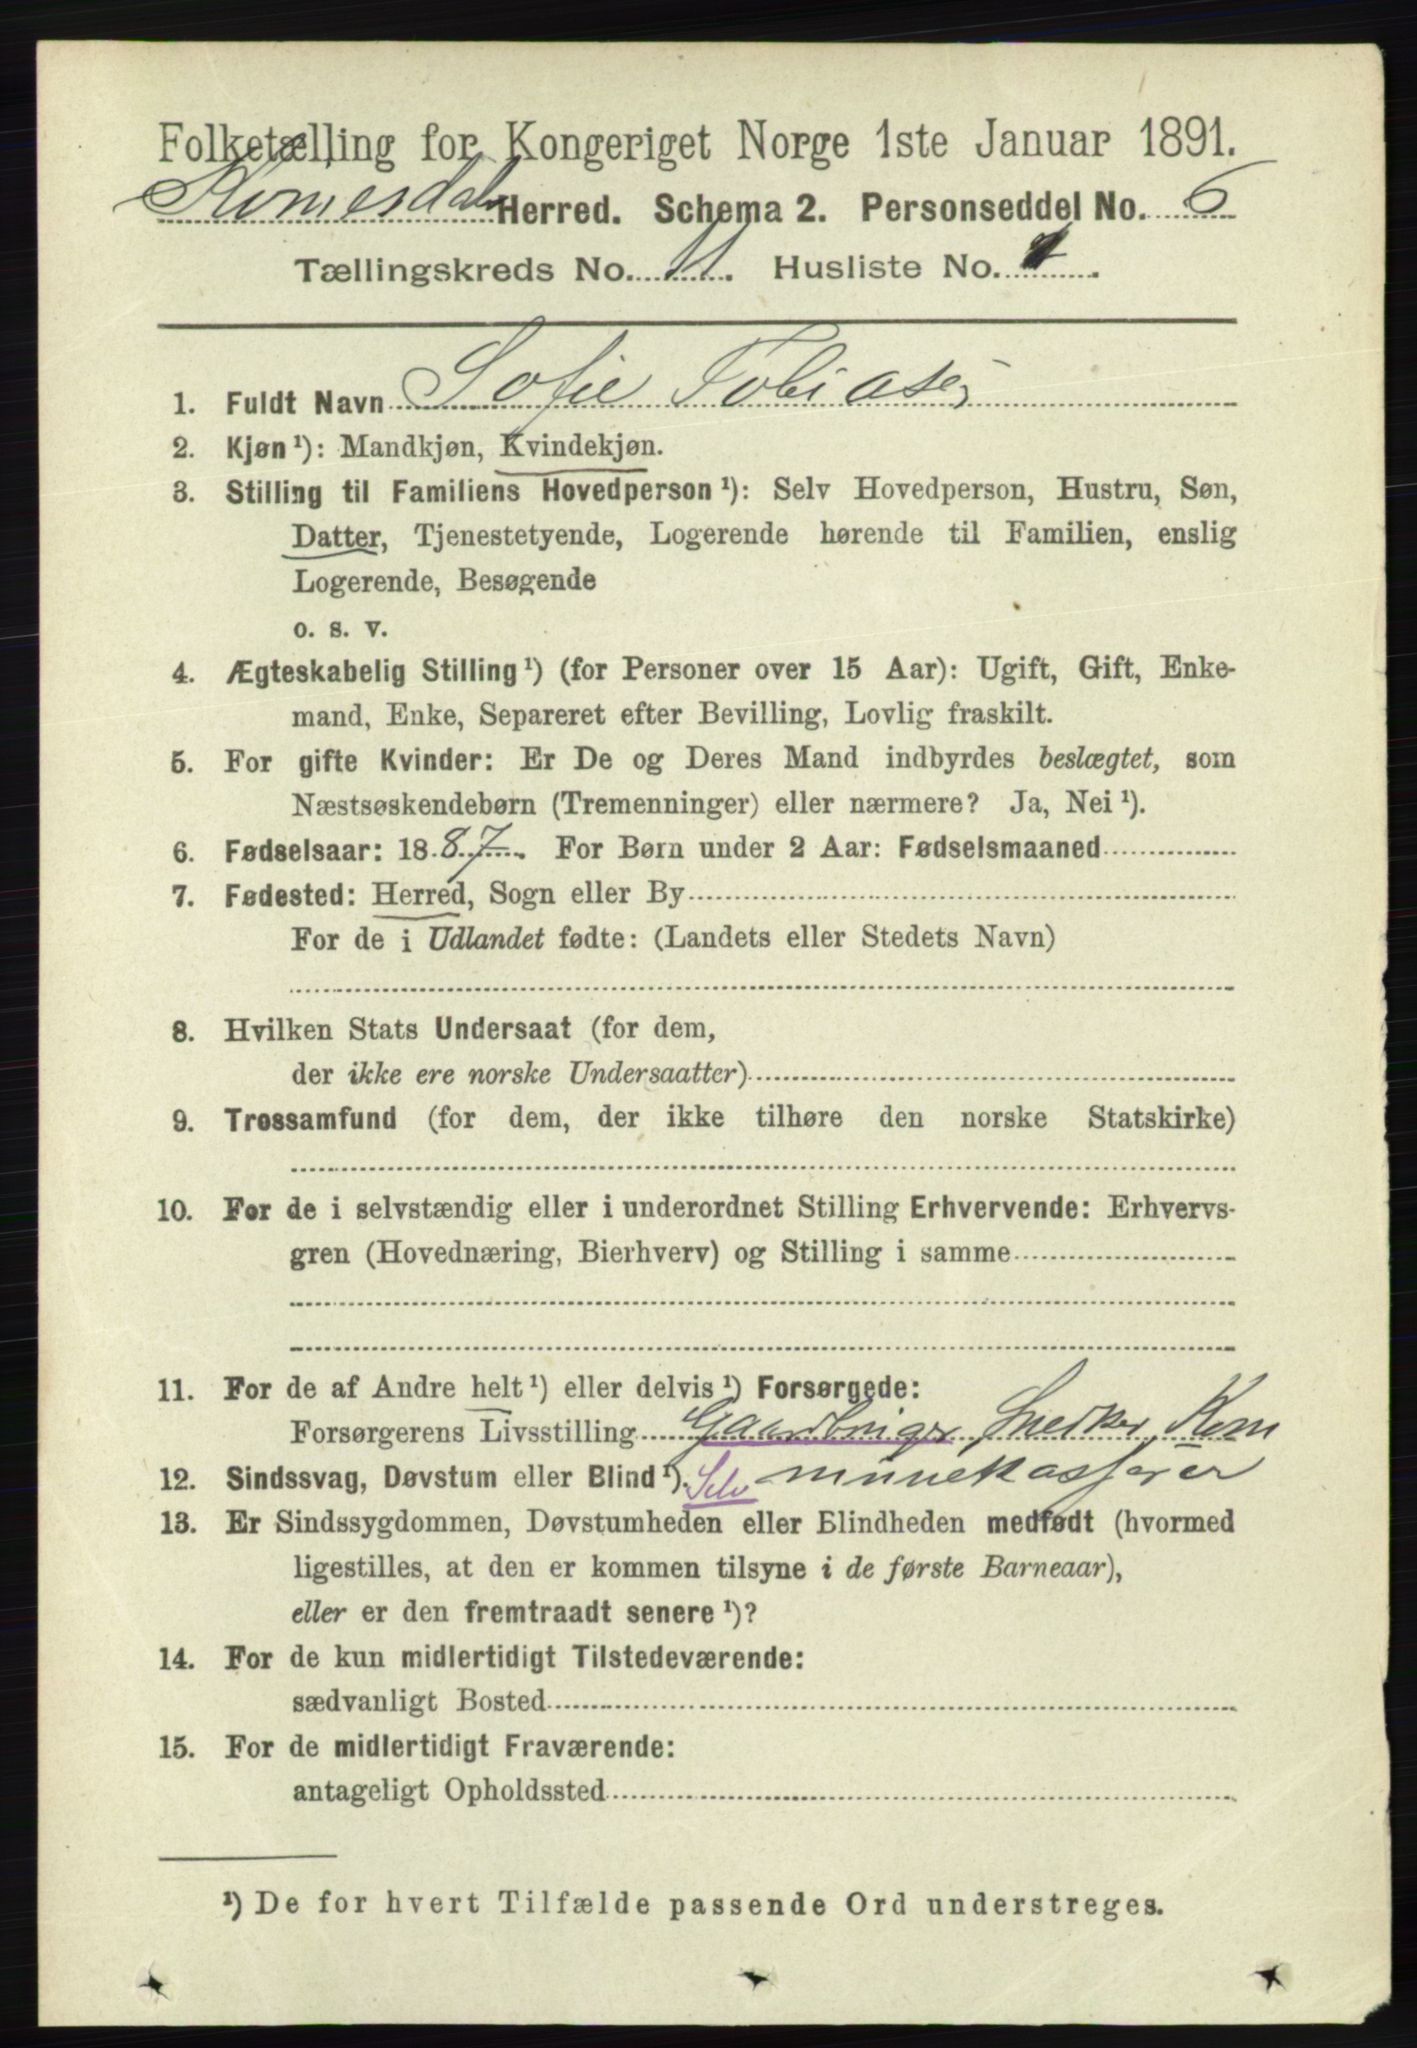 Folketælling for Kongeriget Norge 1ste Januar 1891.
Herred. Schema 2. Personseddel No. 6
Tællingskreds No. 11. Husliste No.
1. Fuldt Navn Sofie Tobiasen
2. Kjøn¹): Mandkjøn, Kvindekjøn.
3. Stilling til Familiens Hovedperson¹): Selv Hovedperson, Hustru, Søn,
Datter, Tjenestetyende, Logerende hørende til Familien, enslig
Logerende, Besøgende
o. s. v.
4. Ægteskabelig Stilling¹) (for Personer over 15 Aar): Ugift, Gift, Enke-
mand, Enke, Separeret efter Bevilling, Lovlig fraskilt.
5. For gifte Kvinder: Er De og Deres Mand indbyrdes beslægtet, som
Næstsøskendebørn (Tremenninger) eller nærmere? Ja, Nei¹).
6. Fødselsaar: 1887. For Børn under 2 Aar: Fødselsmaaned
7. Fødested: Herred, Sogn eller By
For de i Udlandet fødte: (Landets eller Stedets Navn)
8. Hvilken Stats Undersaat (for dem,
der ikke ere norske Undersaatter)
9. Trossamfund (for dem, der ikke tilhøre den norske Statskirke)
10. For de i selvstændig eller i underordnet Stilling Erhvervende: Erhvervs-
gren (Hovednæring, Bierhverv) og Stilling i samme
11. For de af Andre helt¹) eller delvis¹) Forsørgede:
Forsørgerens Livsstilling Gaardbruger, Snedker, Kom
12. Sindssvag, Døvstum eller Blind¹). Selv munekasserer
13. Er Sindssygdommen, Døvstumheden eller Blindheden medfødt (hvormed
ligestilles, at den er kommen tilsyne i de første Barneaar),
eller er den fremtraadt senere¹)?
14. For de kun midlertidigt Tilstedeværende:
sædvanligt Bosted
15. For de midlertidigt Fraværende:
antageligt Opholdssted
¹) De for hvert Tilfælde passende Ord understreges.